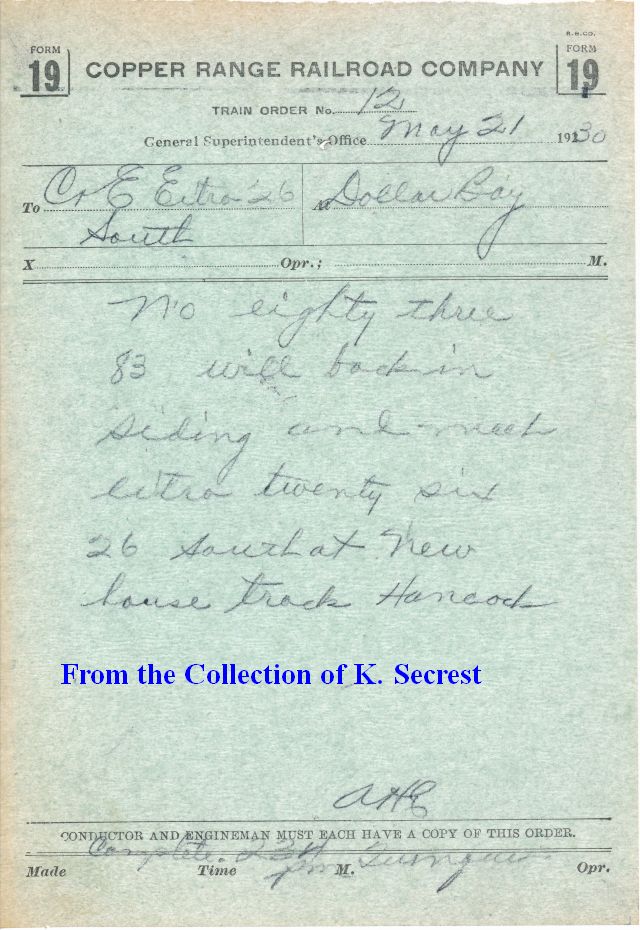 R.R.CO.
FORM 19 COPPER RANGE RAILROAD COMPANY FORM 19
TRAIN ORDER No. 12
General Superintendent's Office May 21 19230
To C & E Extra 26 At Dollar Bay
South
X Opr.; M.
No eighty three
83 will back in
siding and meet
extra twenty six
26 South at New
house track Hancock
From the Collection of K. Secrest
AHE
CONDUCTOR AND ENGINEMAN MUST EACH HAVE A COPY OF THIS ORDER.
Complete pm
Made Time M. Opr.